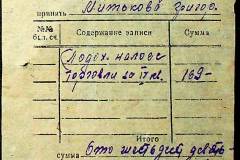 принять Митькова Григор.
№№ бал. сч. Содержание записи Сумма
Подох. налога
торговли за IV кв. 169-
Итого
сумма Сто шестьдесят девять-